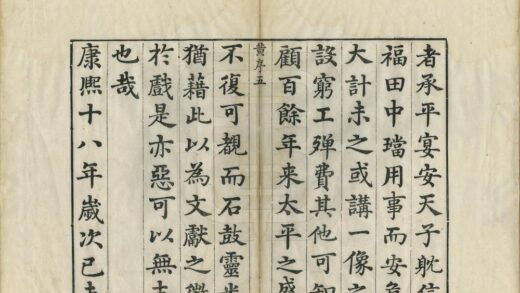 者承平宴安天子躭信
福田中璫用事而安危
大計未之或講一像之
設窮工彈費其他可知
顧百餘年来太平之盛
黄序五
不復可覩而石鼓靈光
猶藉此以為文獻之徴
於戲是亦惡可以無
也哉
康熙十八年歲次已未